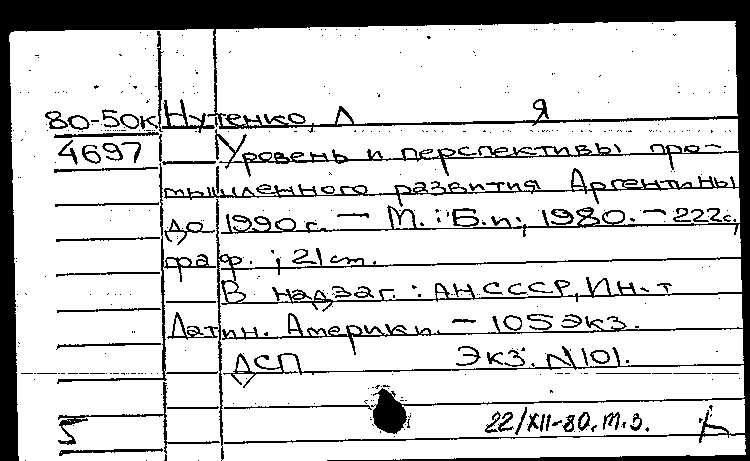 80-50к Нутенко, Л Я
4697 Уровень и перспективы про-
мышленного развития Аргентины
до 1990 г. — М.: Б.и., 1980. — 222 с.,
граф. ; 21 см.
В надзаг.: АН СССР, Ин-т
Латин. Америки. — 105 экз.
ДСП Экз. N 101.
5 22/XII-80. т.з.